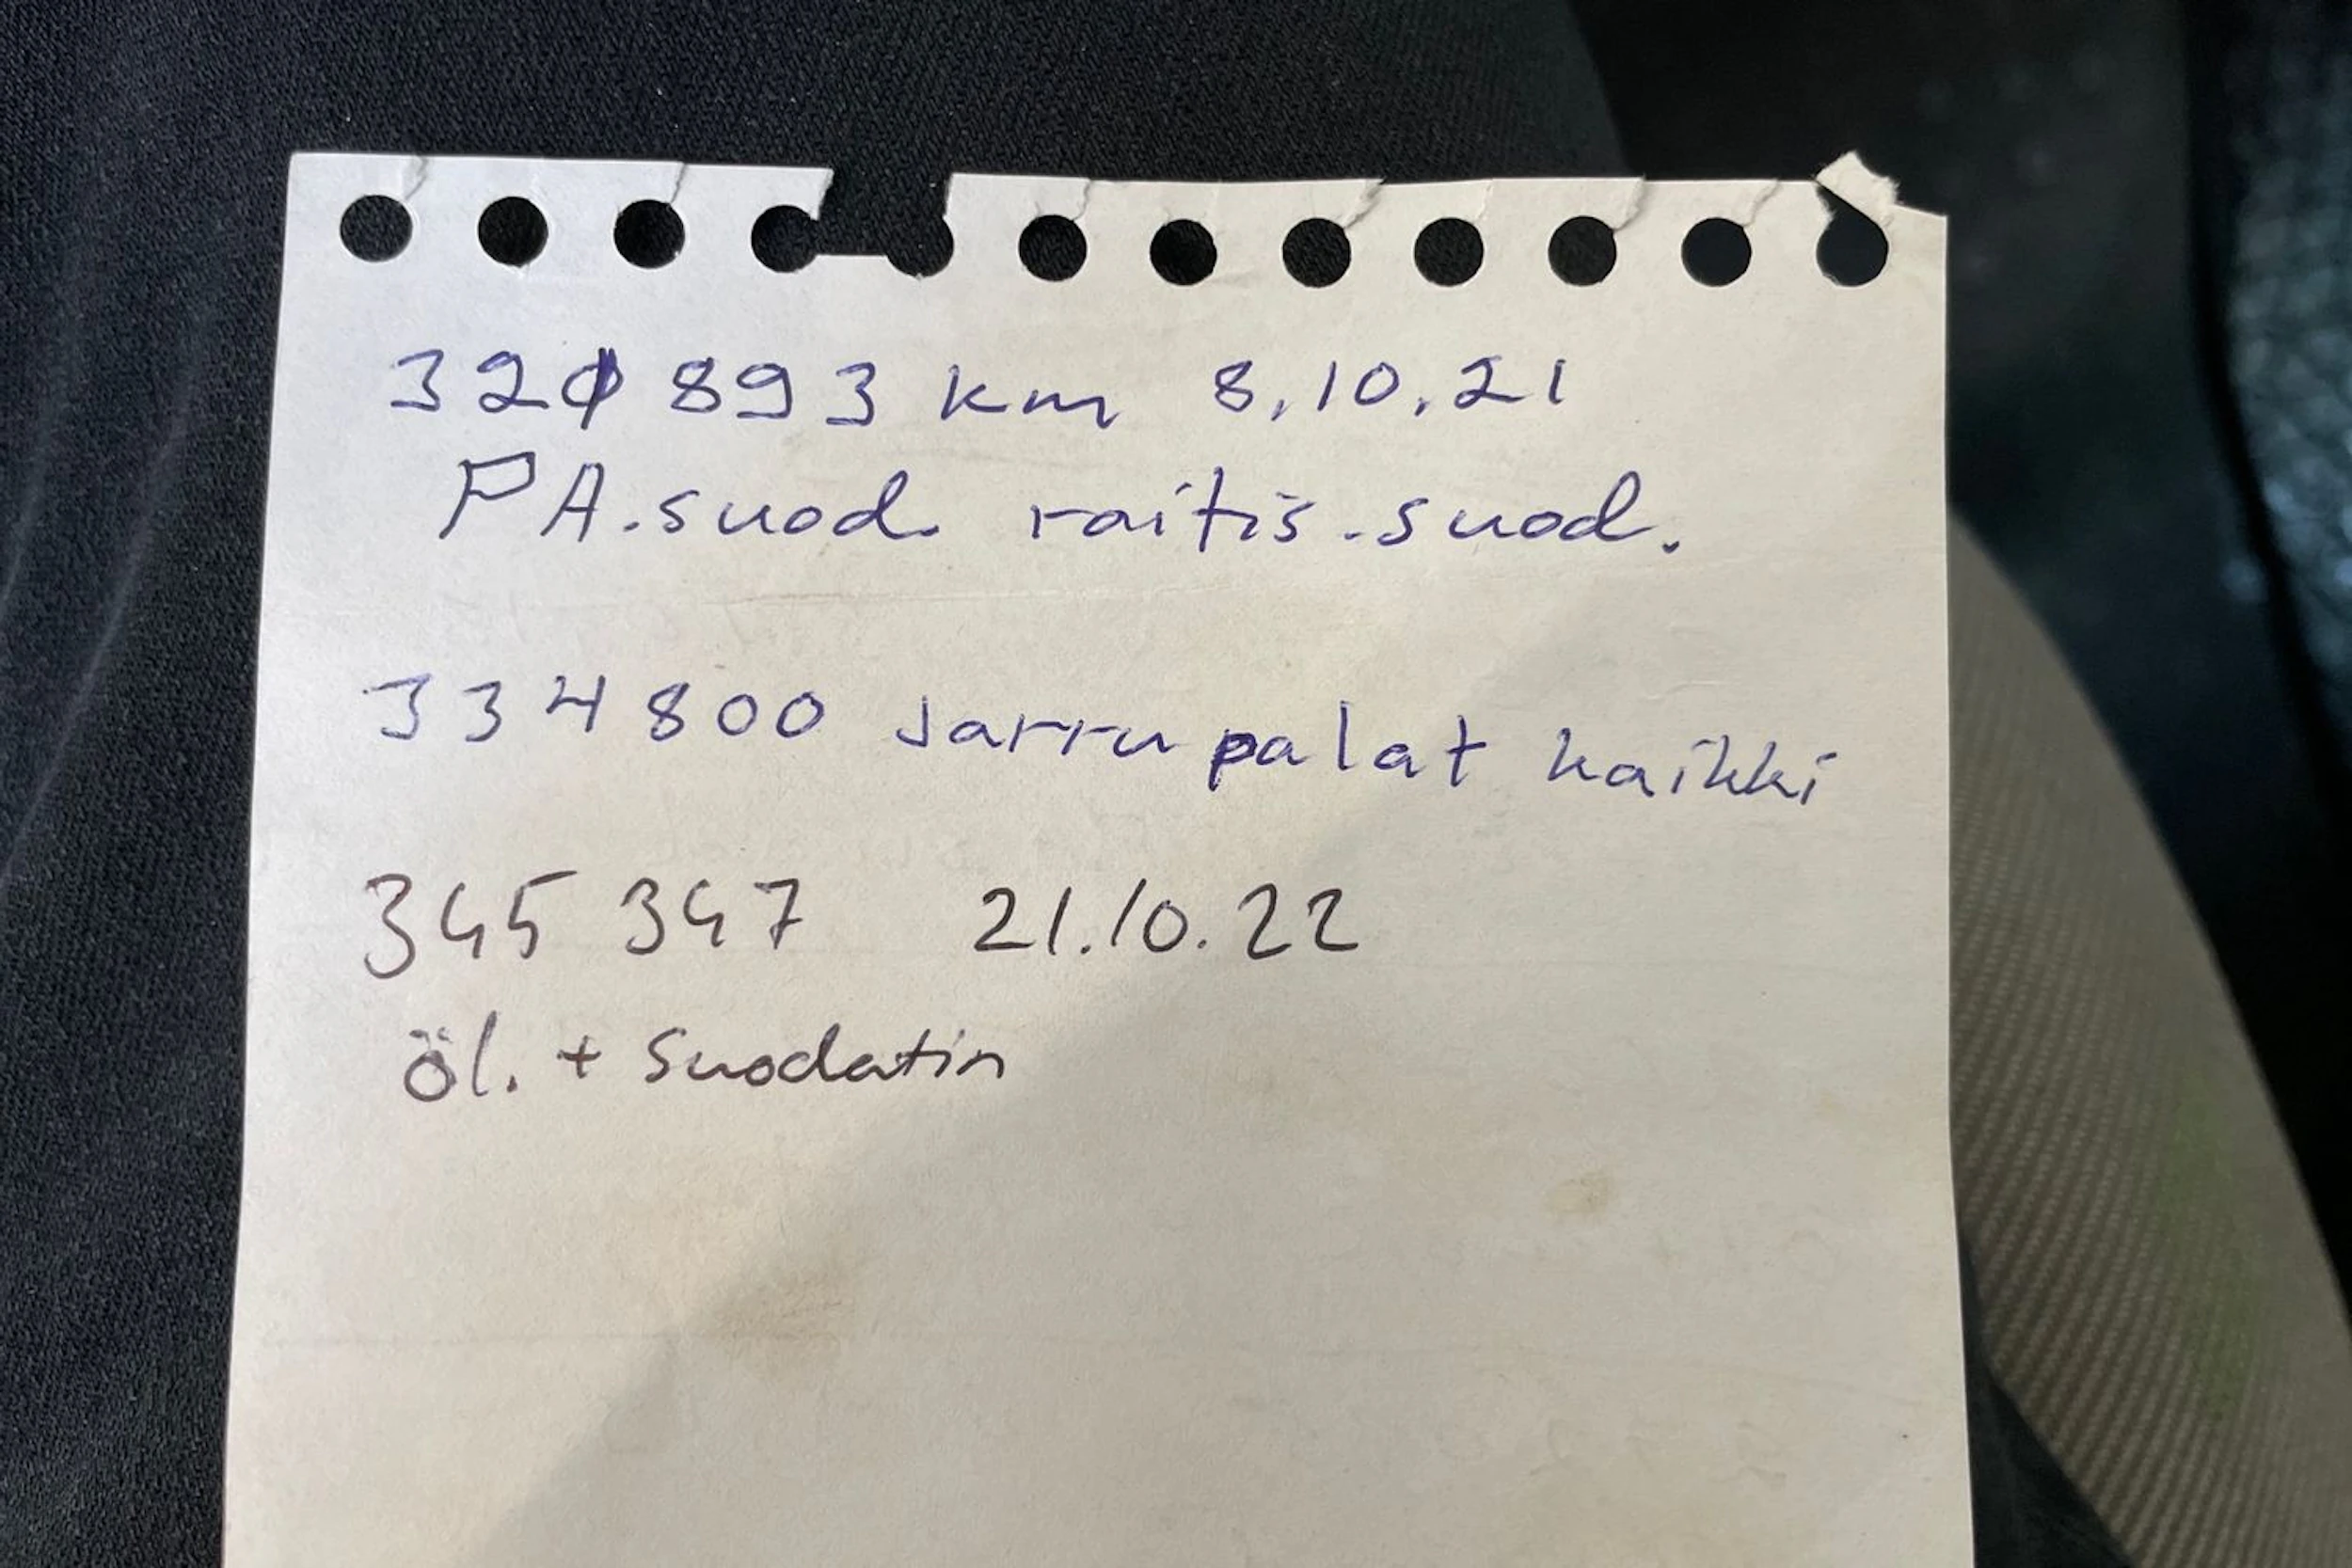 320 893 km 8.10.21
PA.suod. raitis.suod.
334800 Jarrupalat kaikki
345 347 21.10.22
öl. + Suodatin